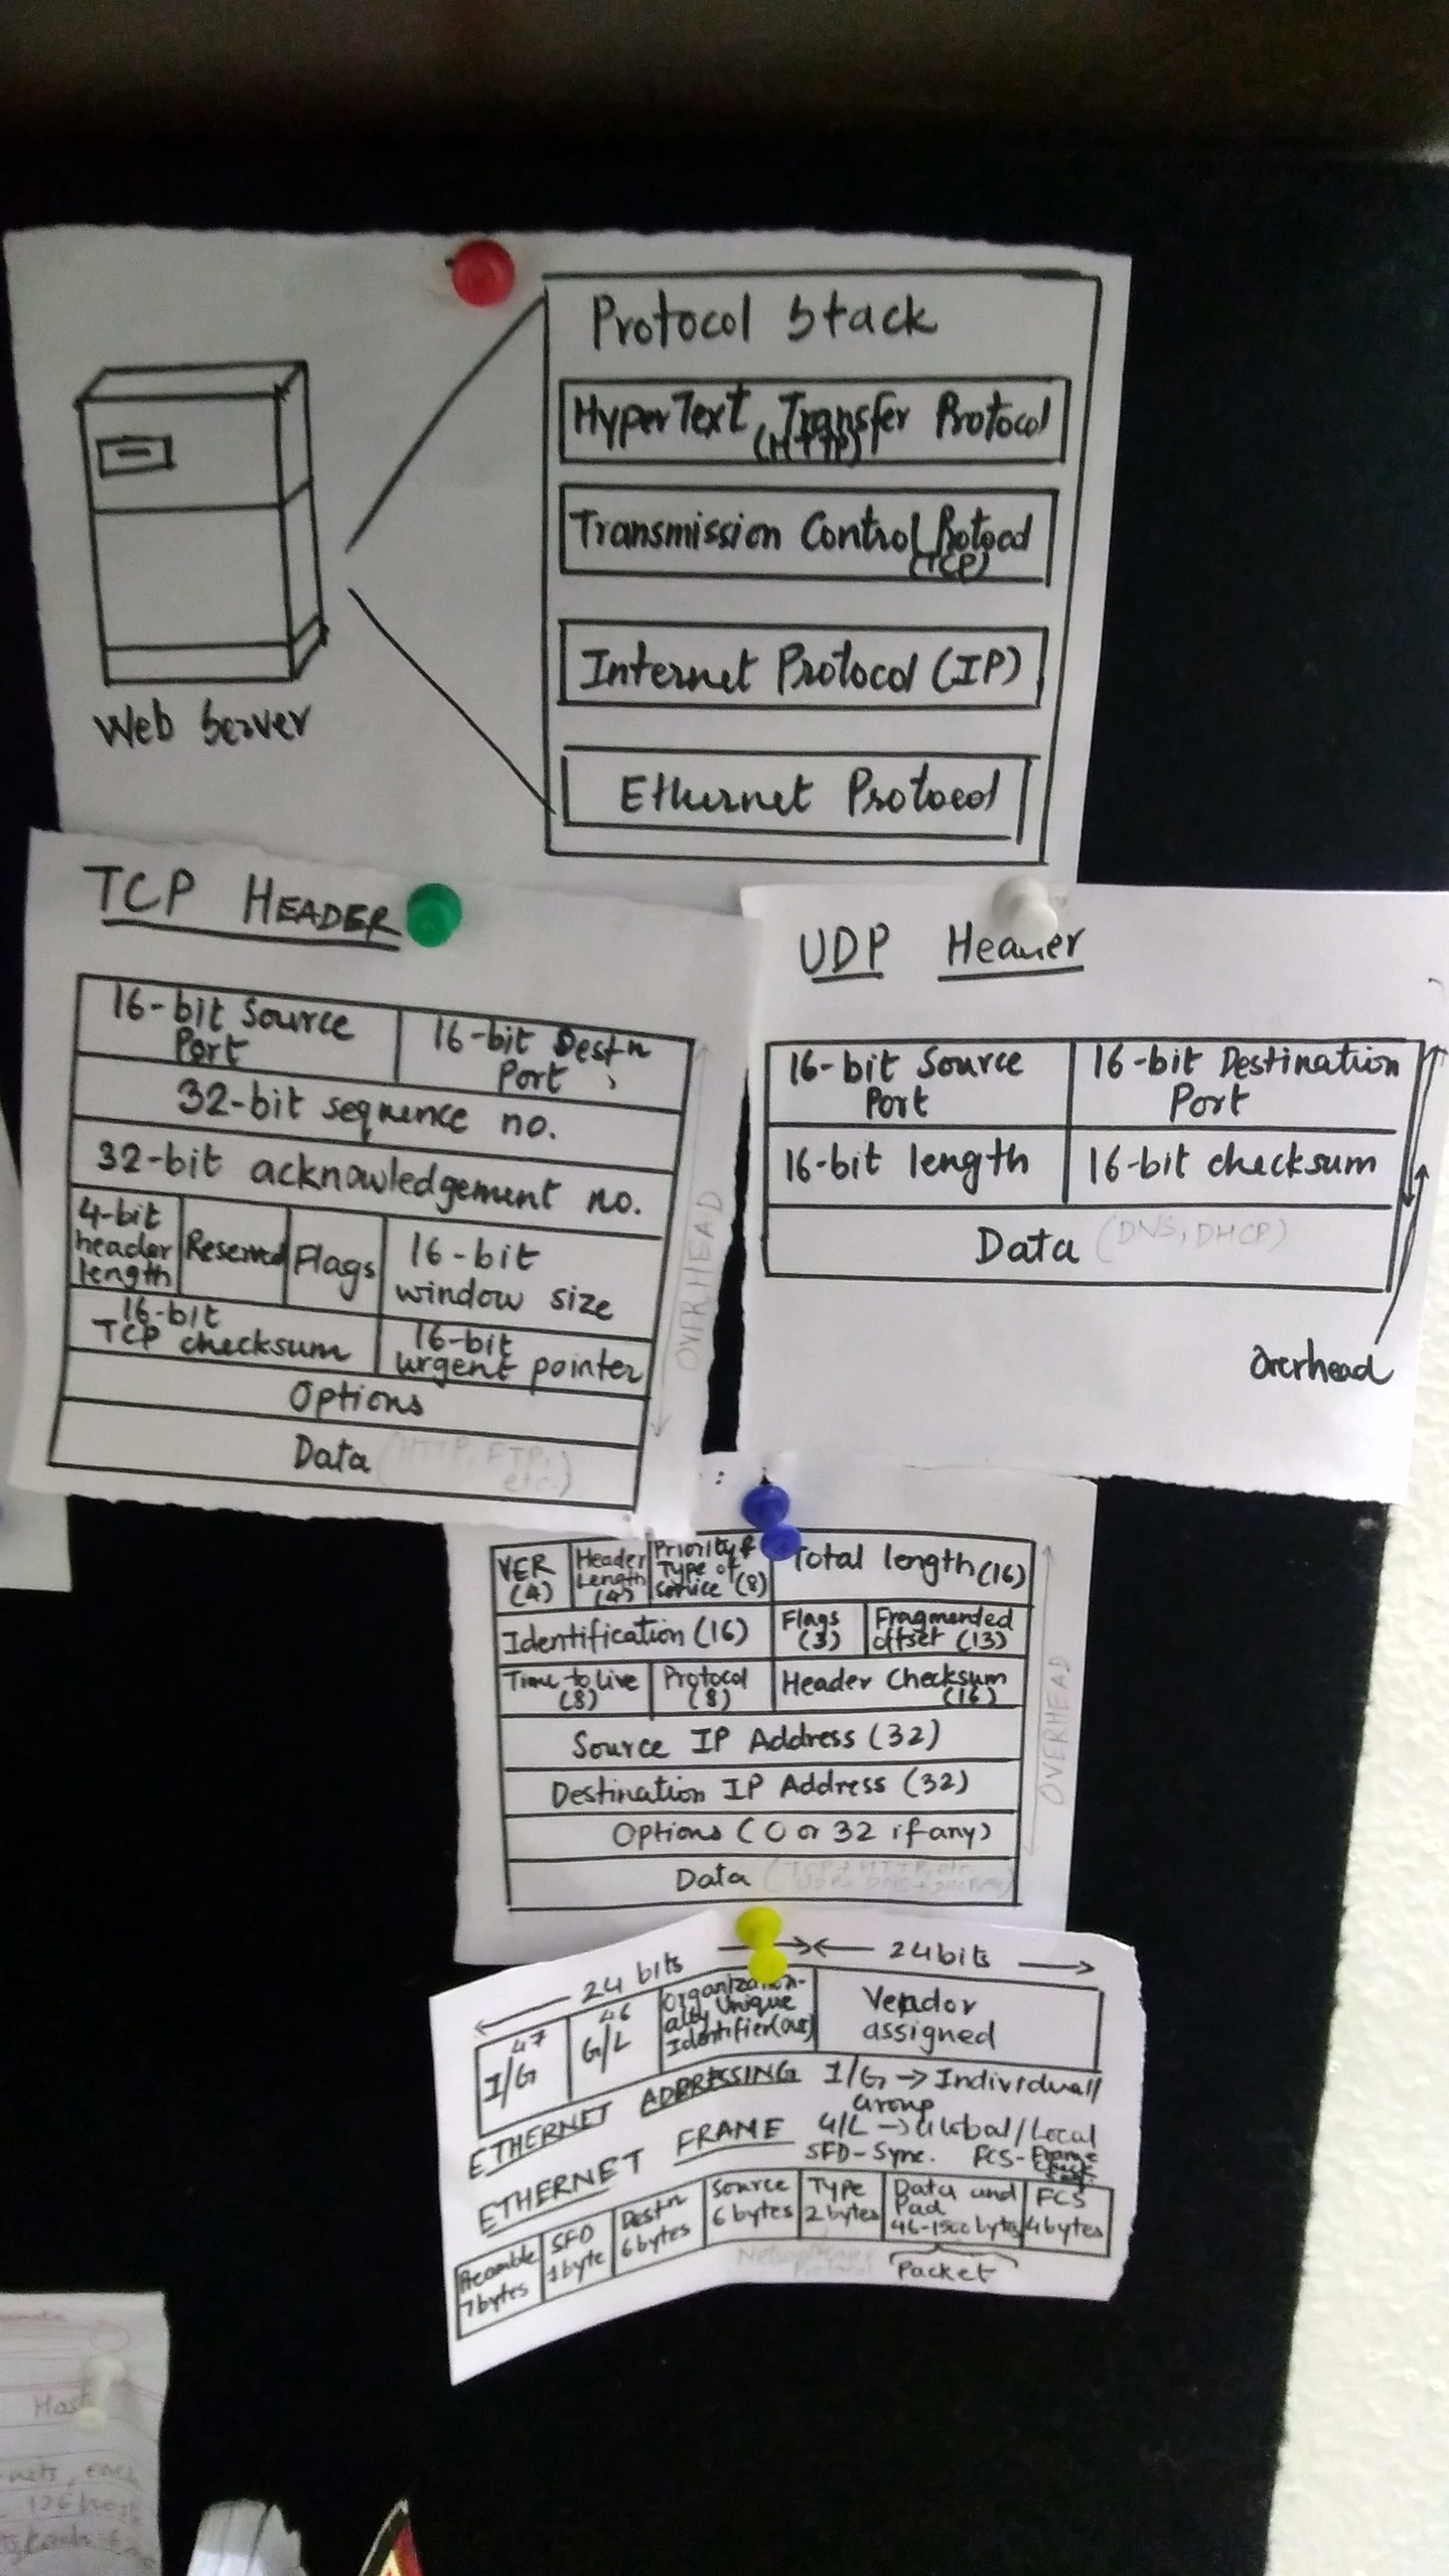 Protocol Stack
HyperText Transfer Protocol
(HTTP)
Transmission Control Protocol
(TCP)
Internet Protocol (IP)
Ethernet Protocol
Web Server
TCP HEADER
16-bit Source
Port
16-bit Destn
Port
32-bit sequence no.
32-bit acknowledgement no.
4-bit
header
length
Reserved
Flags
16-bit
window size
16-bit
TCP checksum
16-bit
urgent pointer
Options
Data (HTTP, FTP,
etc.)
OVERHEAD
UDP Header
16-bit Source
Port
16-bit Destination
Port
16-bit length
16-bit checksum
Data (DNS, DHCP)
Overhead
VER
(4)
Header
Length
(4)
Priority &
Type of
Service (8)
Total length (16)
Identification (16)
Flags
(3)
Fragmented
offset (13)
Time to Live
(8)
Protocol
(8)
Header Checksum
(16)
Source IP Address (32)
Destination IP Address (32)
Options (0 or 32 if any)
Data
OVERHEAD
24 bits
24 bits
47
I/G
46
G/L
Organization-
ally Unique
Identifier
Vendor
assigned
ETHERNET ADDRESSING
I/G → Individual/
Group
G/L → Global/Local
ETHERNET FRAME
SFD - Sync.
FCS - Frame
Preamble
7 bytes
SFD
1 byte
Destn
6 bytes
Source
6 bytes
Type
2 bytes
Data and
Pad
46-1500 bytes
FCS
4 bytes
Packet
Host
each